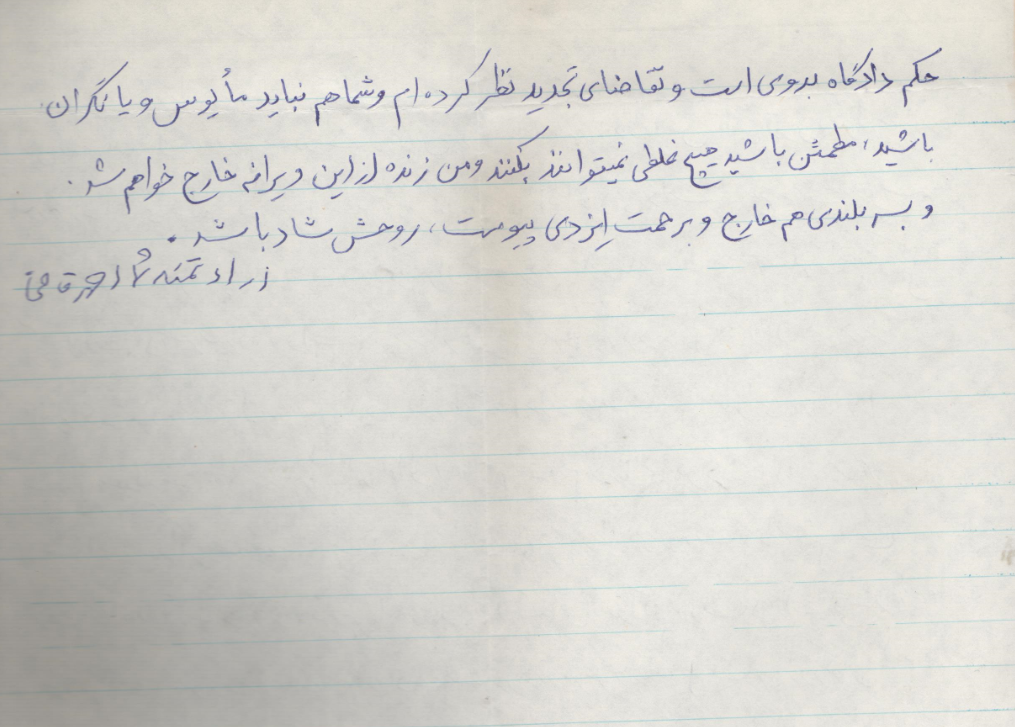 حکم دادگاه بدوی است و تقاضای تجدید نظر کرده ام و شما هم نباید مأیوس و یا نگران
باشید، مطمئن باشید هیچ غلطی نمیتوانند بکنند و من زنده از این ویرانه خارج خواهم شد.
و بسر بلندی هم خارج و برحمتِ ایزدی پیوست، روحش شاد باشد.